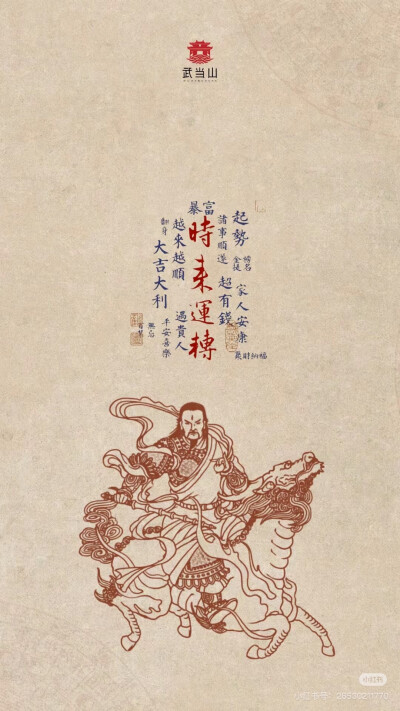 武当山
起勢
金榜提名
家人安康
諸事順遂
超有錢
暴富
時来運轉
遇貴人
越來越順
平安喜樂
翻身
大吉大利
小红书